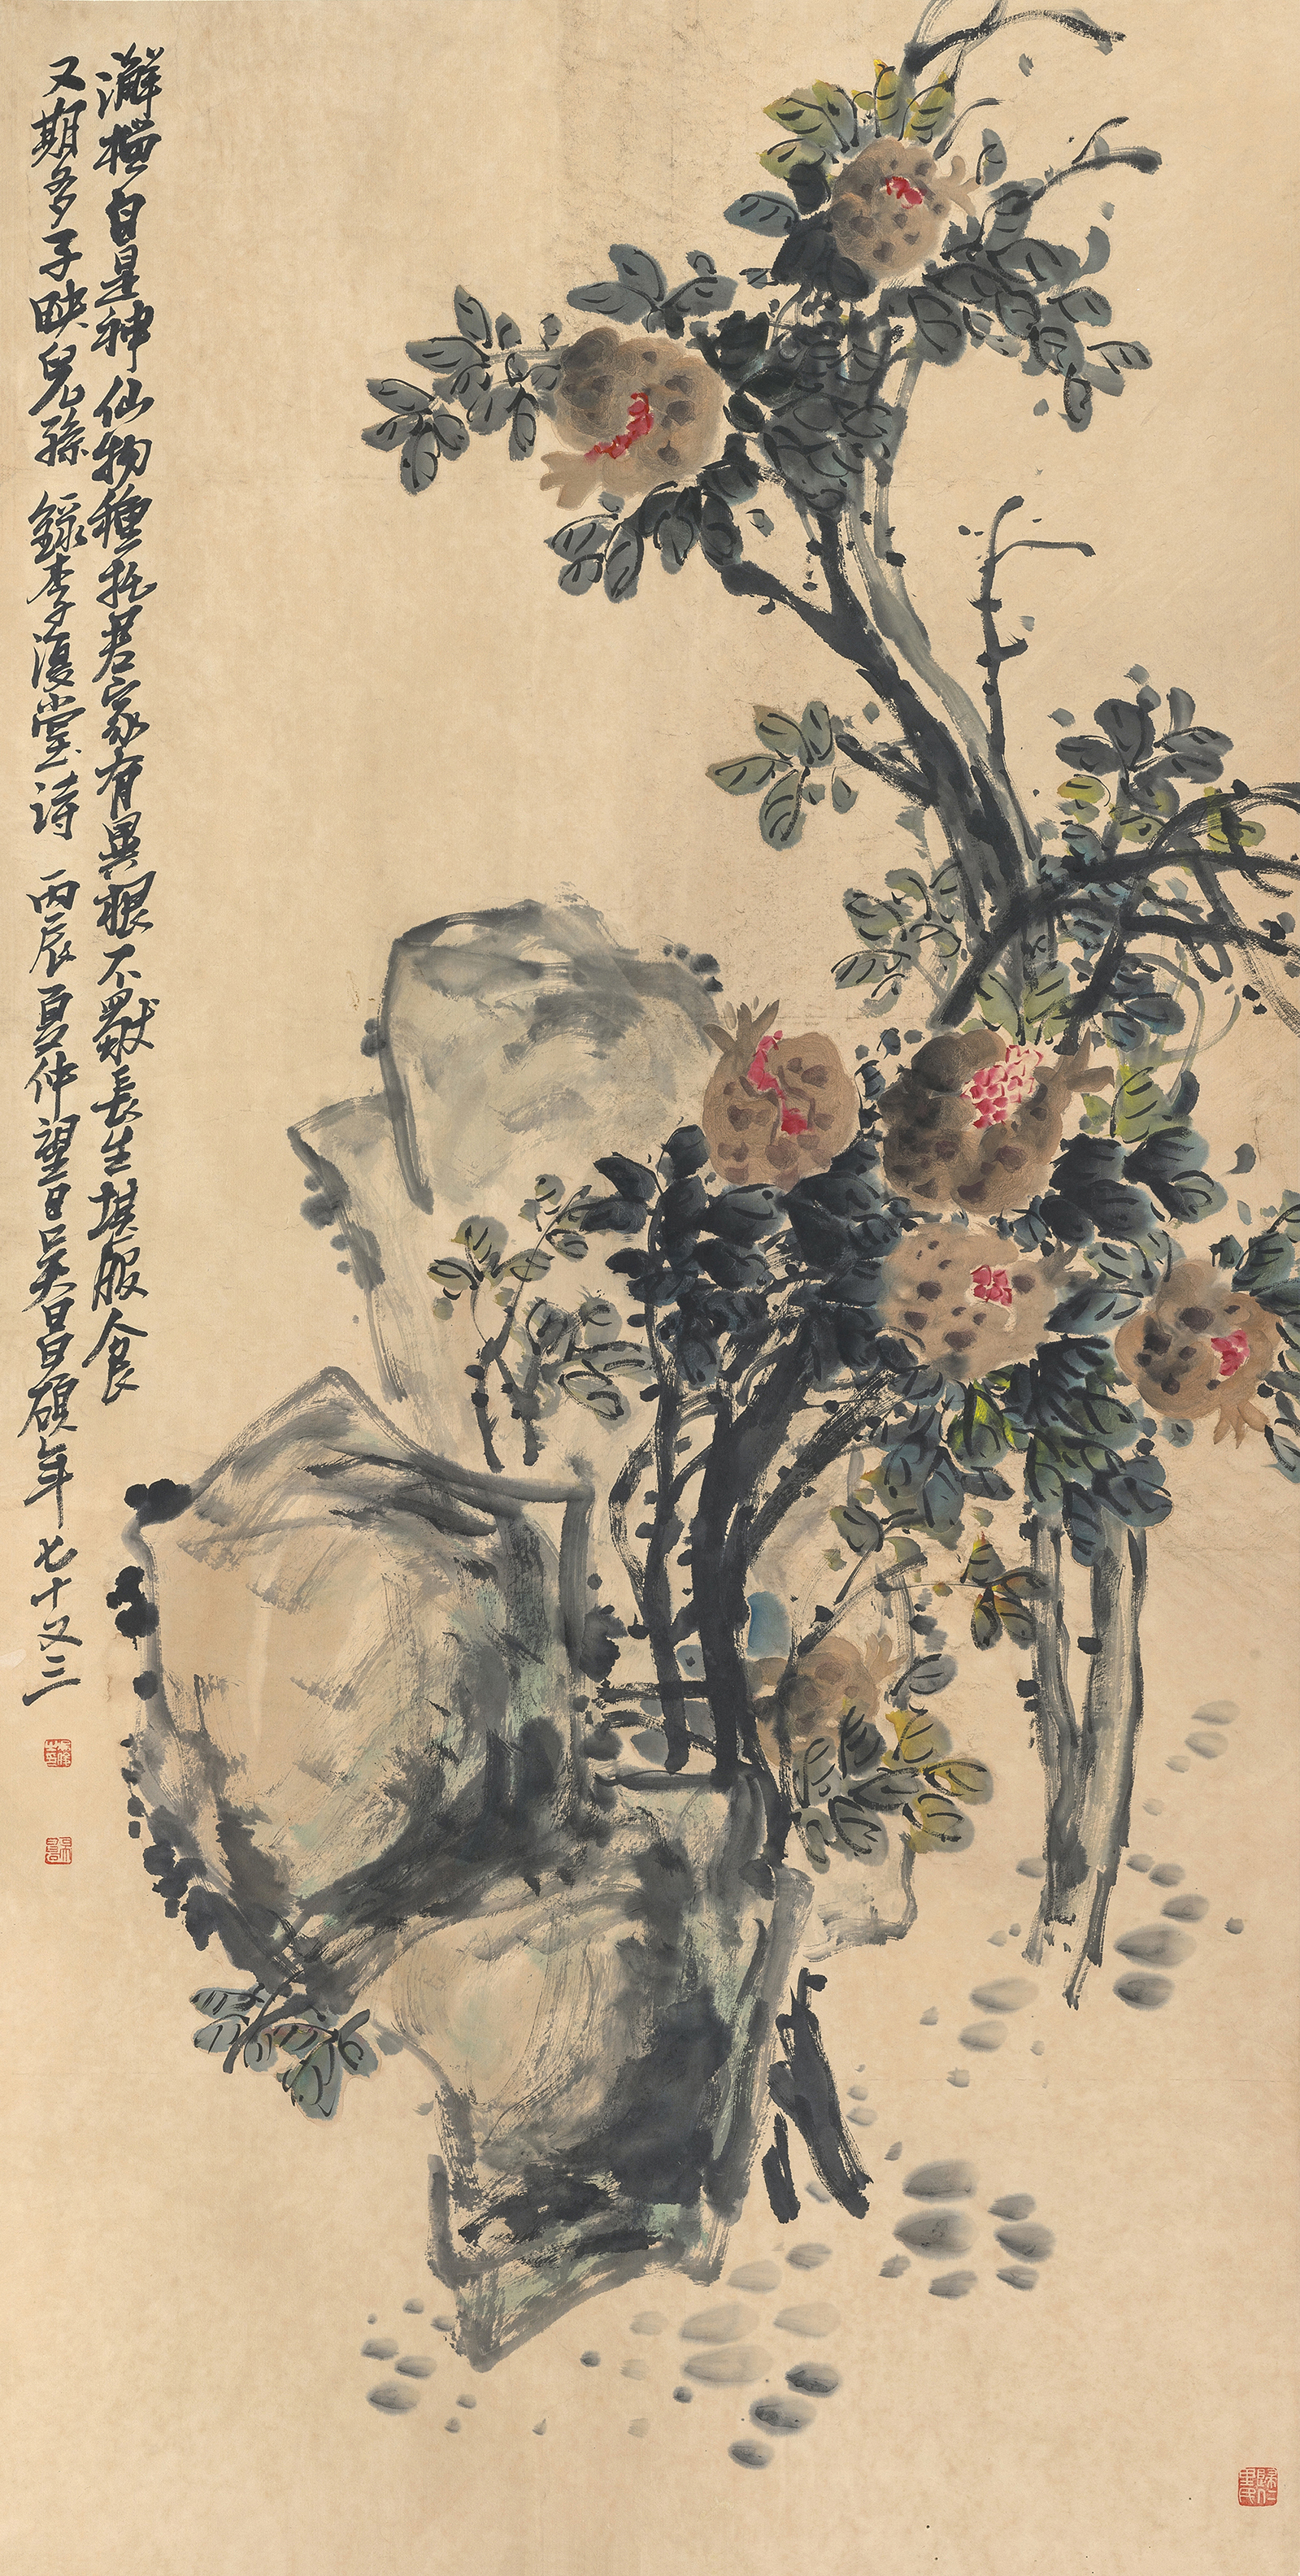 瀣榲自是神仙物種托君家有異根不獨長生堪服食
又期多子映兒孫 錄李復堂詩 丙辰夏仲望日吳昌碩年七十又三
歸仁里民